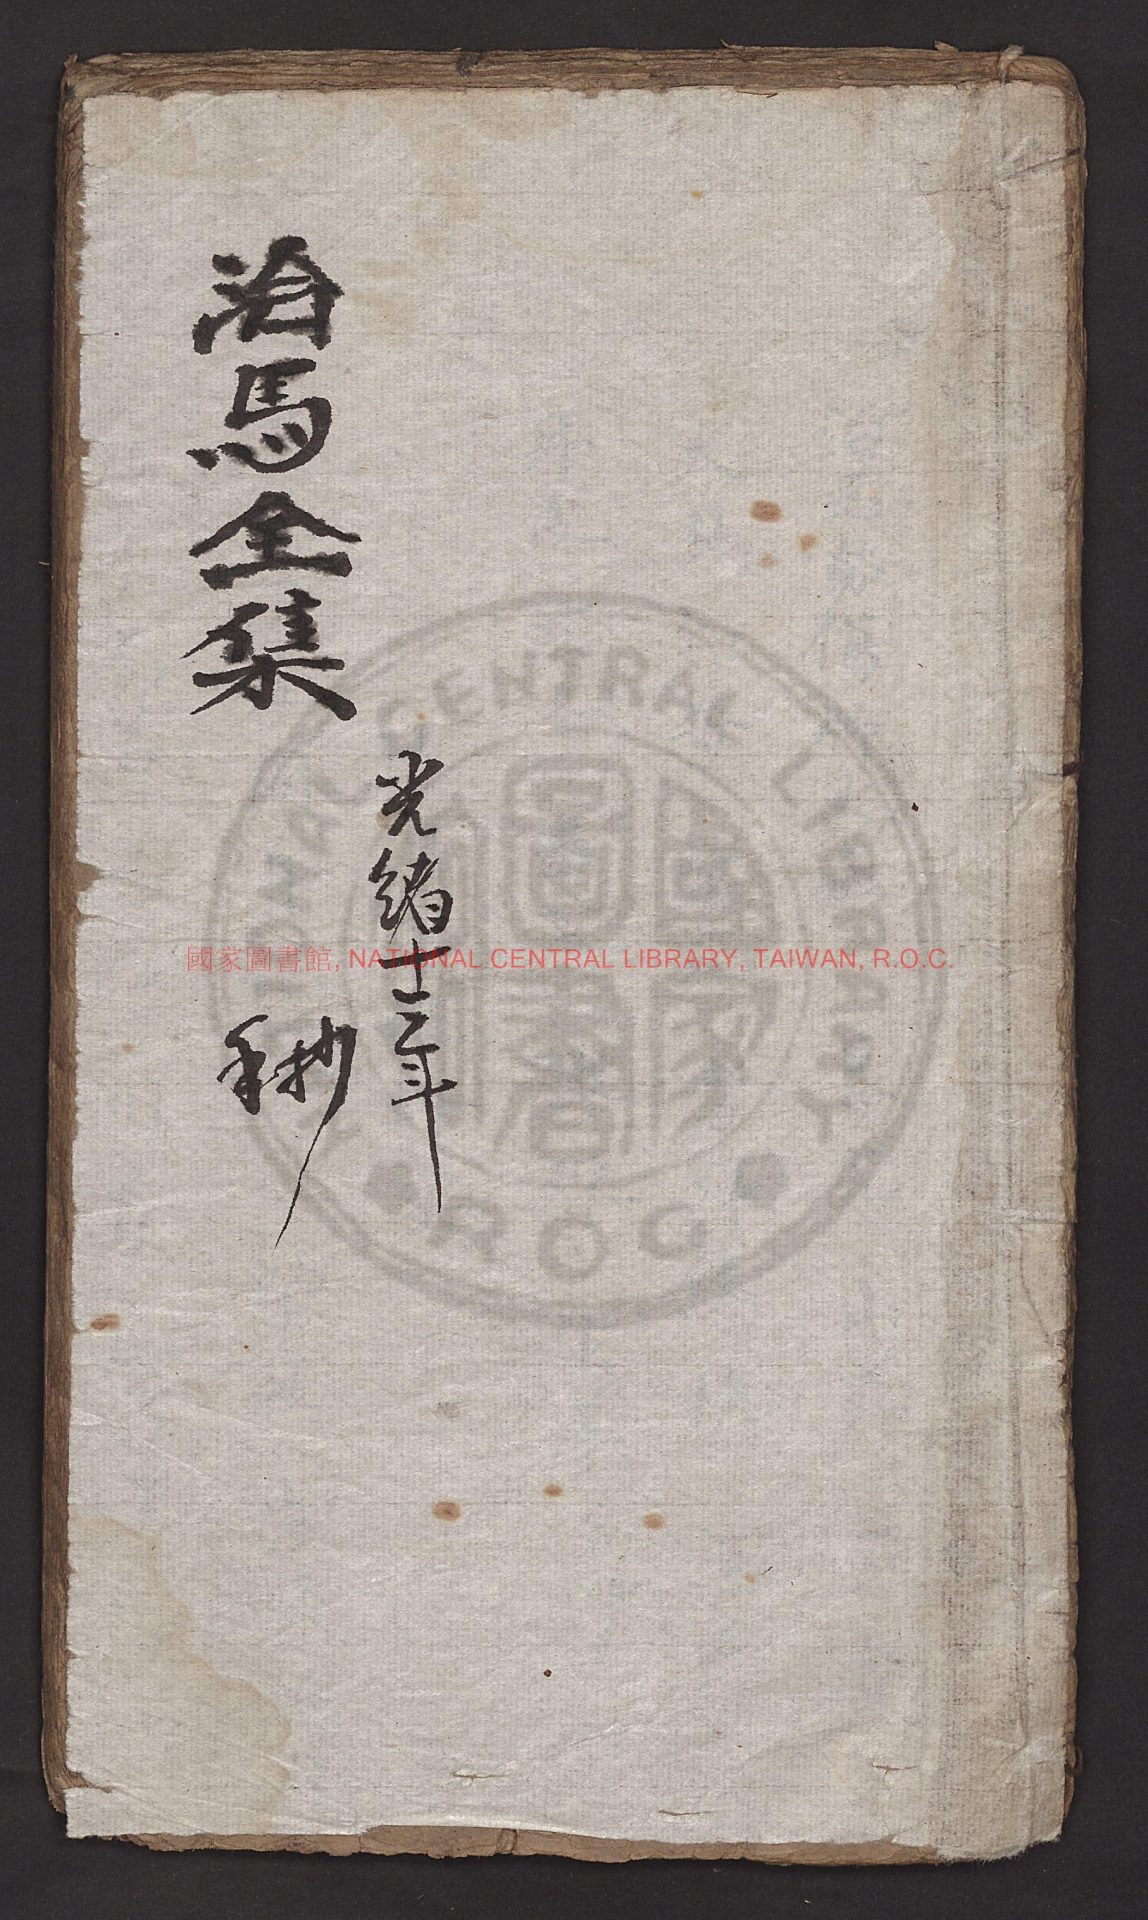 治馬全集
光緒十二年
手抄
國家圖書館, NATIONAL CENTRAL LIBRARY, TAIWAN, R.O.C.
NATIONAL CENTRAL LIBRARY
ROC